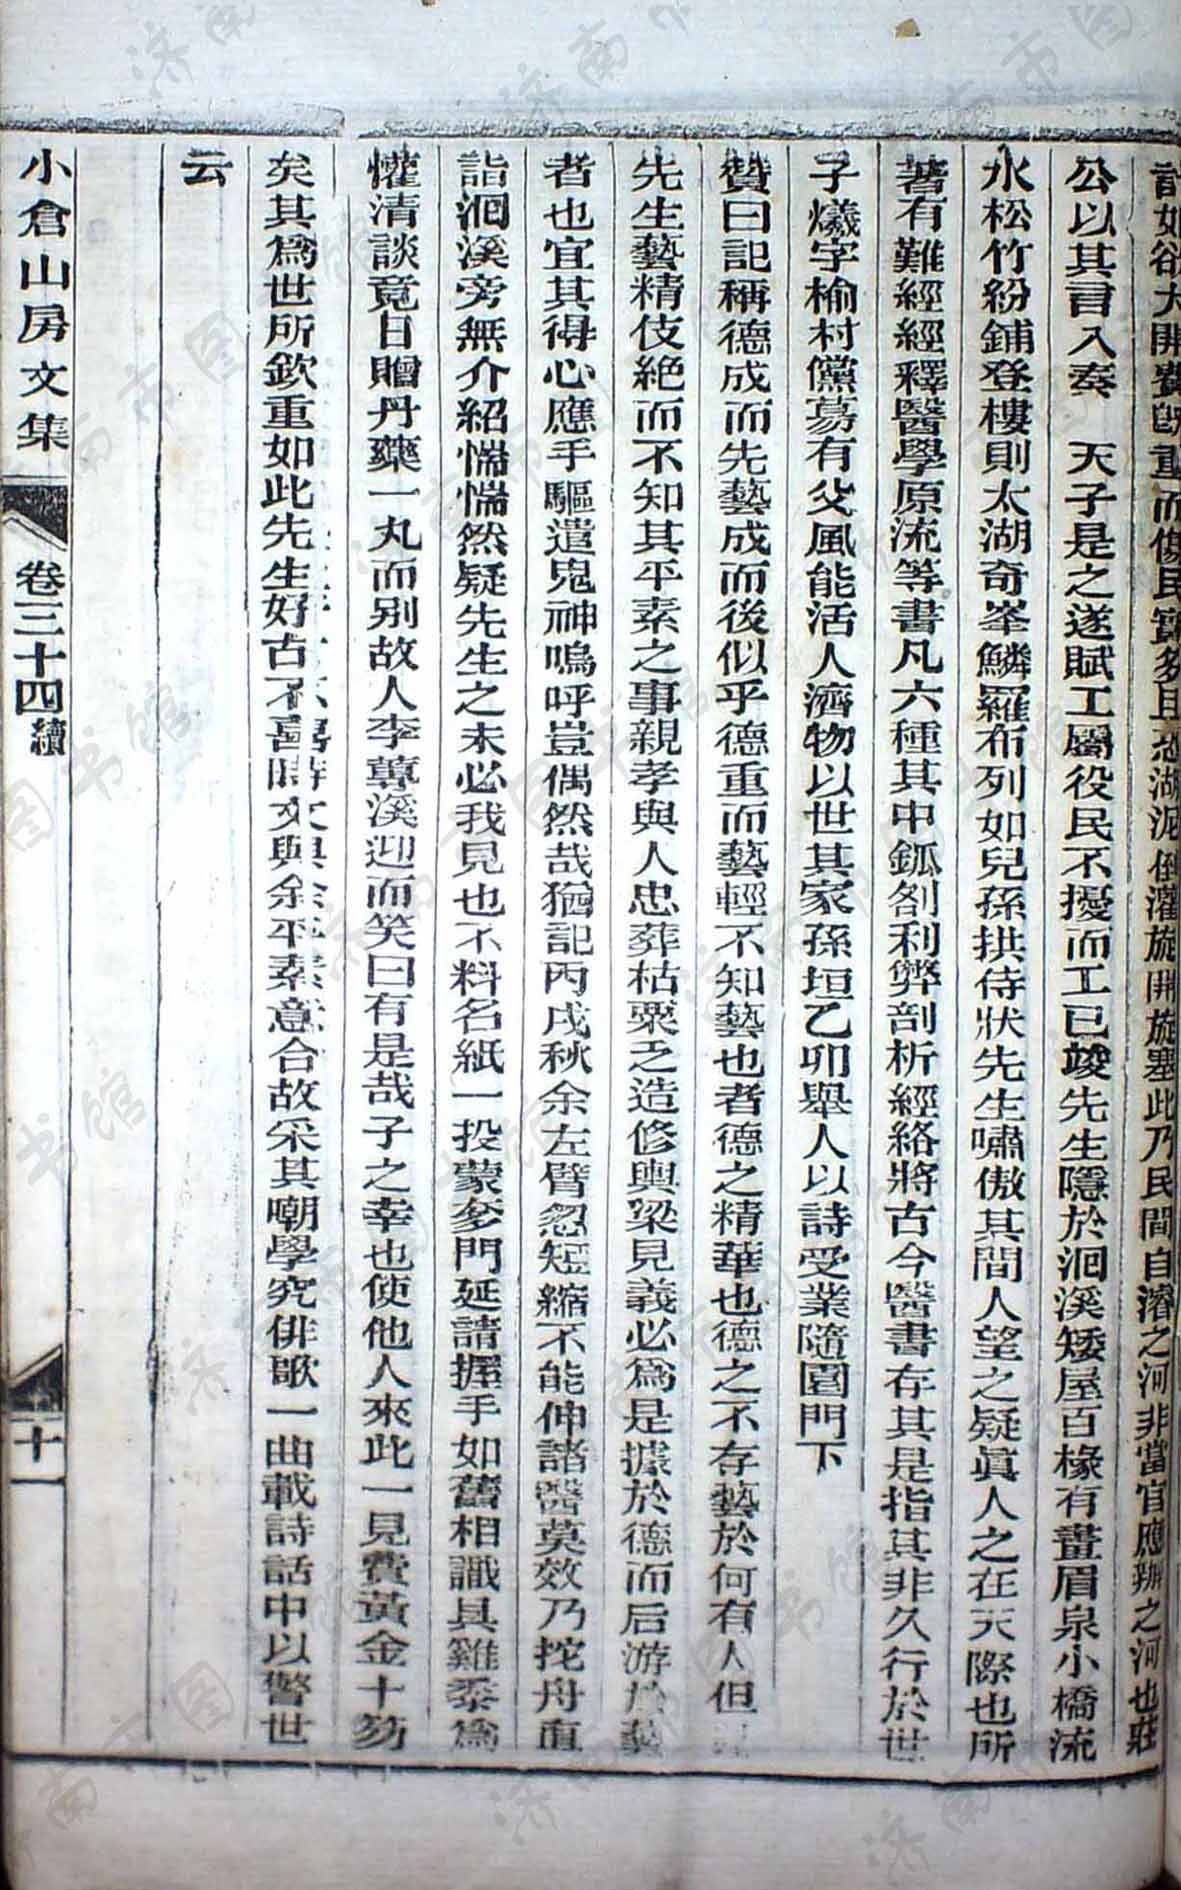 言如欲大開費既重而傷民實多且恐湖泥倒灌旋開旋塞此乃民間自濬之河非當官應辦之河也莊
公以其言入奏　天子是之遂賦工屬役民不擾而工已竣先生隱於洄溪矮屋百椽有畫眉泉小橋流
水松竹紛鋪登樓則太湖奇峯鱗羅布列如兒孫拱侍狀先生嘯傲其間人望之疑眞人之在天際也所
著有難經經釋醫學原流等書凡六種其中鈲劀利弊剖析經絡將古今醫書存其是指其非久行於世
子爔字榆村儻蕩有父風能活人濟物以世其家孫垣乙卯舉人以詩受業隨園門下
贊曰記稱德成而先藝成而後似乎德重而藝輕不知藝也者德之精華也德之不存藝於何有人但
先生藝精伎絶而不知其平素之事親孝與人忠葬枯粟乏造修輿梁見義必爲是據於德而后游於藝
者也宜其得心應手驅遣鬼神嗚呼豈偶然哉猶記丙戌秋余左臂忽短縮不能伸諸醫莫效乃拕舟直
詣洄溪旁無介紹惴惴然疑先生之未必我見也不料名紙一投蒙奓門延請握手如舊相識具雞黍爲
懽清談竟日贈丹藥一丸而别故人李蓴溪迎而笑曰有是哉子之幸也使他人來此一見費黃金十笏
矣其爲世所欽重如此先生好古不喜時文與余平素意合故采其嘲學究俳歌一曲載詩話中以警世
云
小倉山房文集
卷三十四續
十一
濟南市图书馆